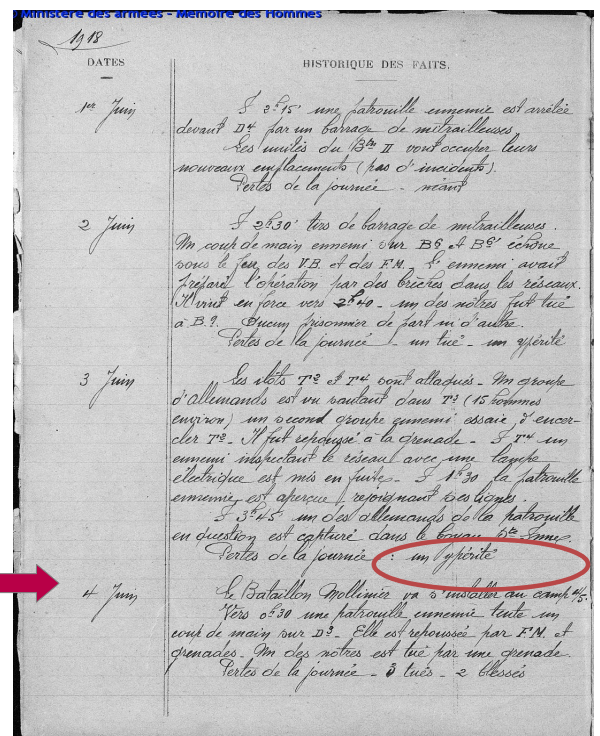 Ministère des armées - Mémoire des Hommes
1918
DATES
HISTORIQUE DES FAITS.
1er Juin
À 2h15' une patrouille ennemie est arrêtée
devant D4 par un barrage de mitrailleuses.
Les unités du Btn II vont occuper leurs
nouveaux emplacements (pas d'incidents).
Pertes de la journée - néant
2 Juin
À 2h30' tirs de barrage de mitrailleuses.
Un coup de main ennemi sur B6 et B6' échoue
sous le feu des V.B. et des F.M. L'ennemi avait
préparé l'opération par des brèches dans les réseaux.
Il vint en force vers 2h40 - un des nôtres fut tué
à B.9. Aucun prisonnier de part ni d'autre.
Pertes de la journée - un tué - un ypérité
3 Juin
Les ilôts T2 et T4 sont attaqués - Un groupe
d'allemands est vu sautant dans T2 (15 hommes
environ) un second groupe ennemi essaie d'encer-
cler T2 - Il fut repoussé à la grenade - À T4 un
ennemi inspectant le réseau avec une lampe
électrique est mis en fuite - À 1h30 la patrouille
ennemie est aperçue rejoignant ses lignes.
À 3h45' un des allemands de la patrouille
en question est capturé dans le boyau Ste Anne.
Pertes de la journée : un Ypérité
4 Juin
Le Bataillon Mollinier va s'installer au camp 4/5.
Vers 0h30 une patrouille ennemie tente un
coup de main sur D2 - Elle est repoussée par F.M. et
grenades - Un des nôtres est tué par une grenade.
Pertes de la journée - 3 tués - 2 blessés